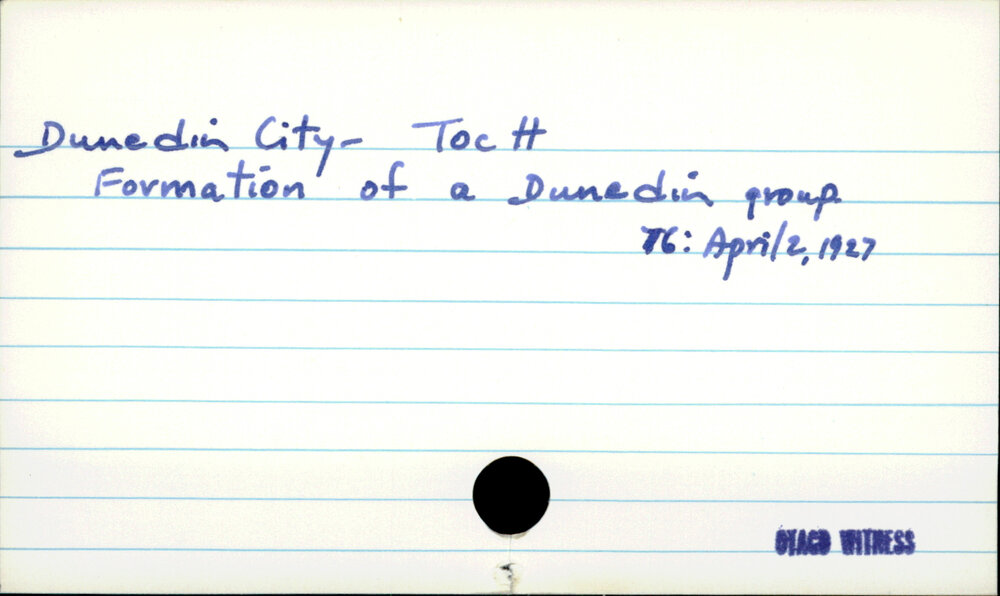 Dunedin City- Toc H
Formation of a Dunedin group
76: April 2, 1927
OTAGO WITNESS